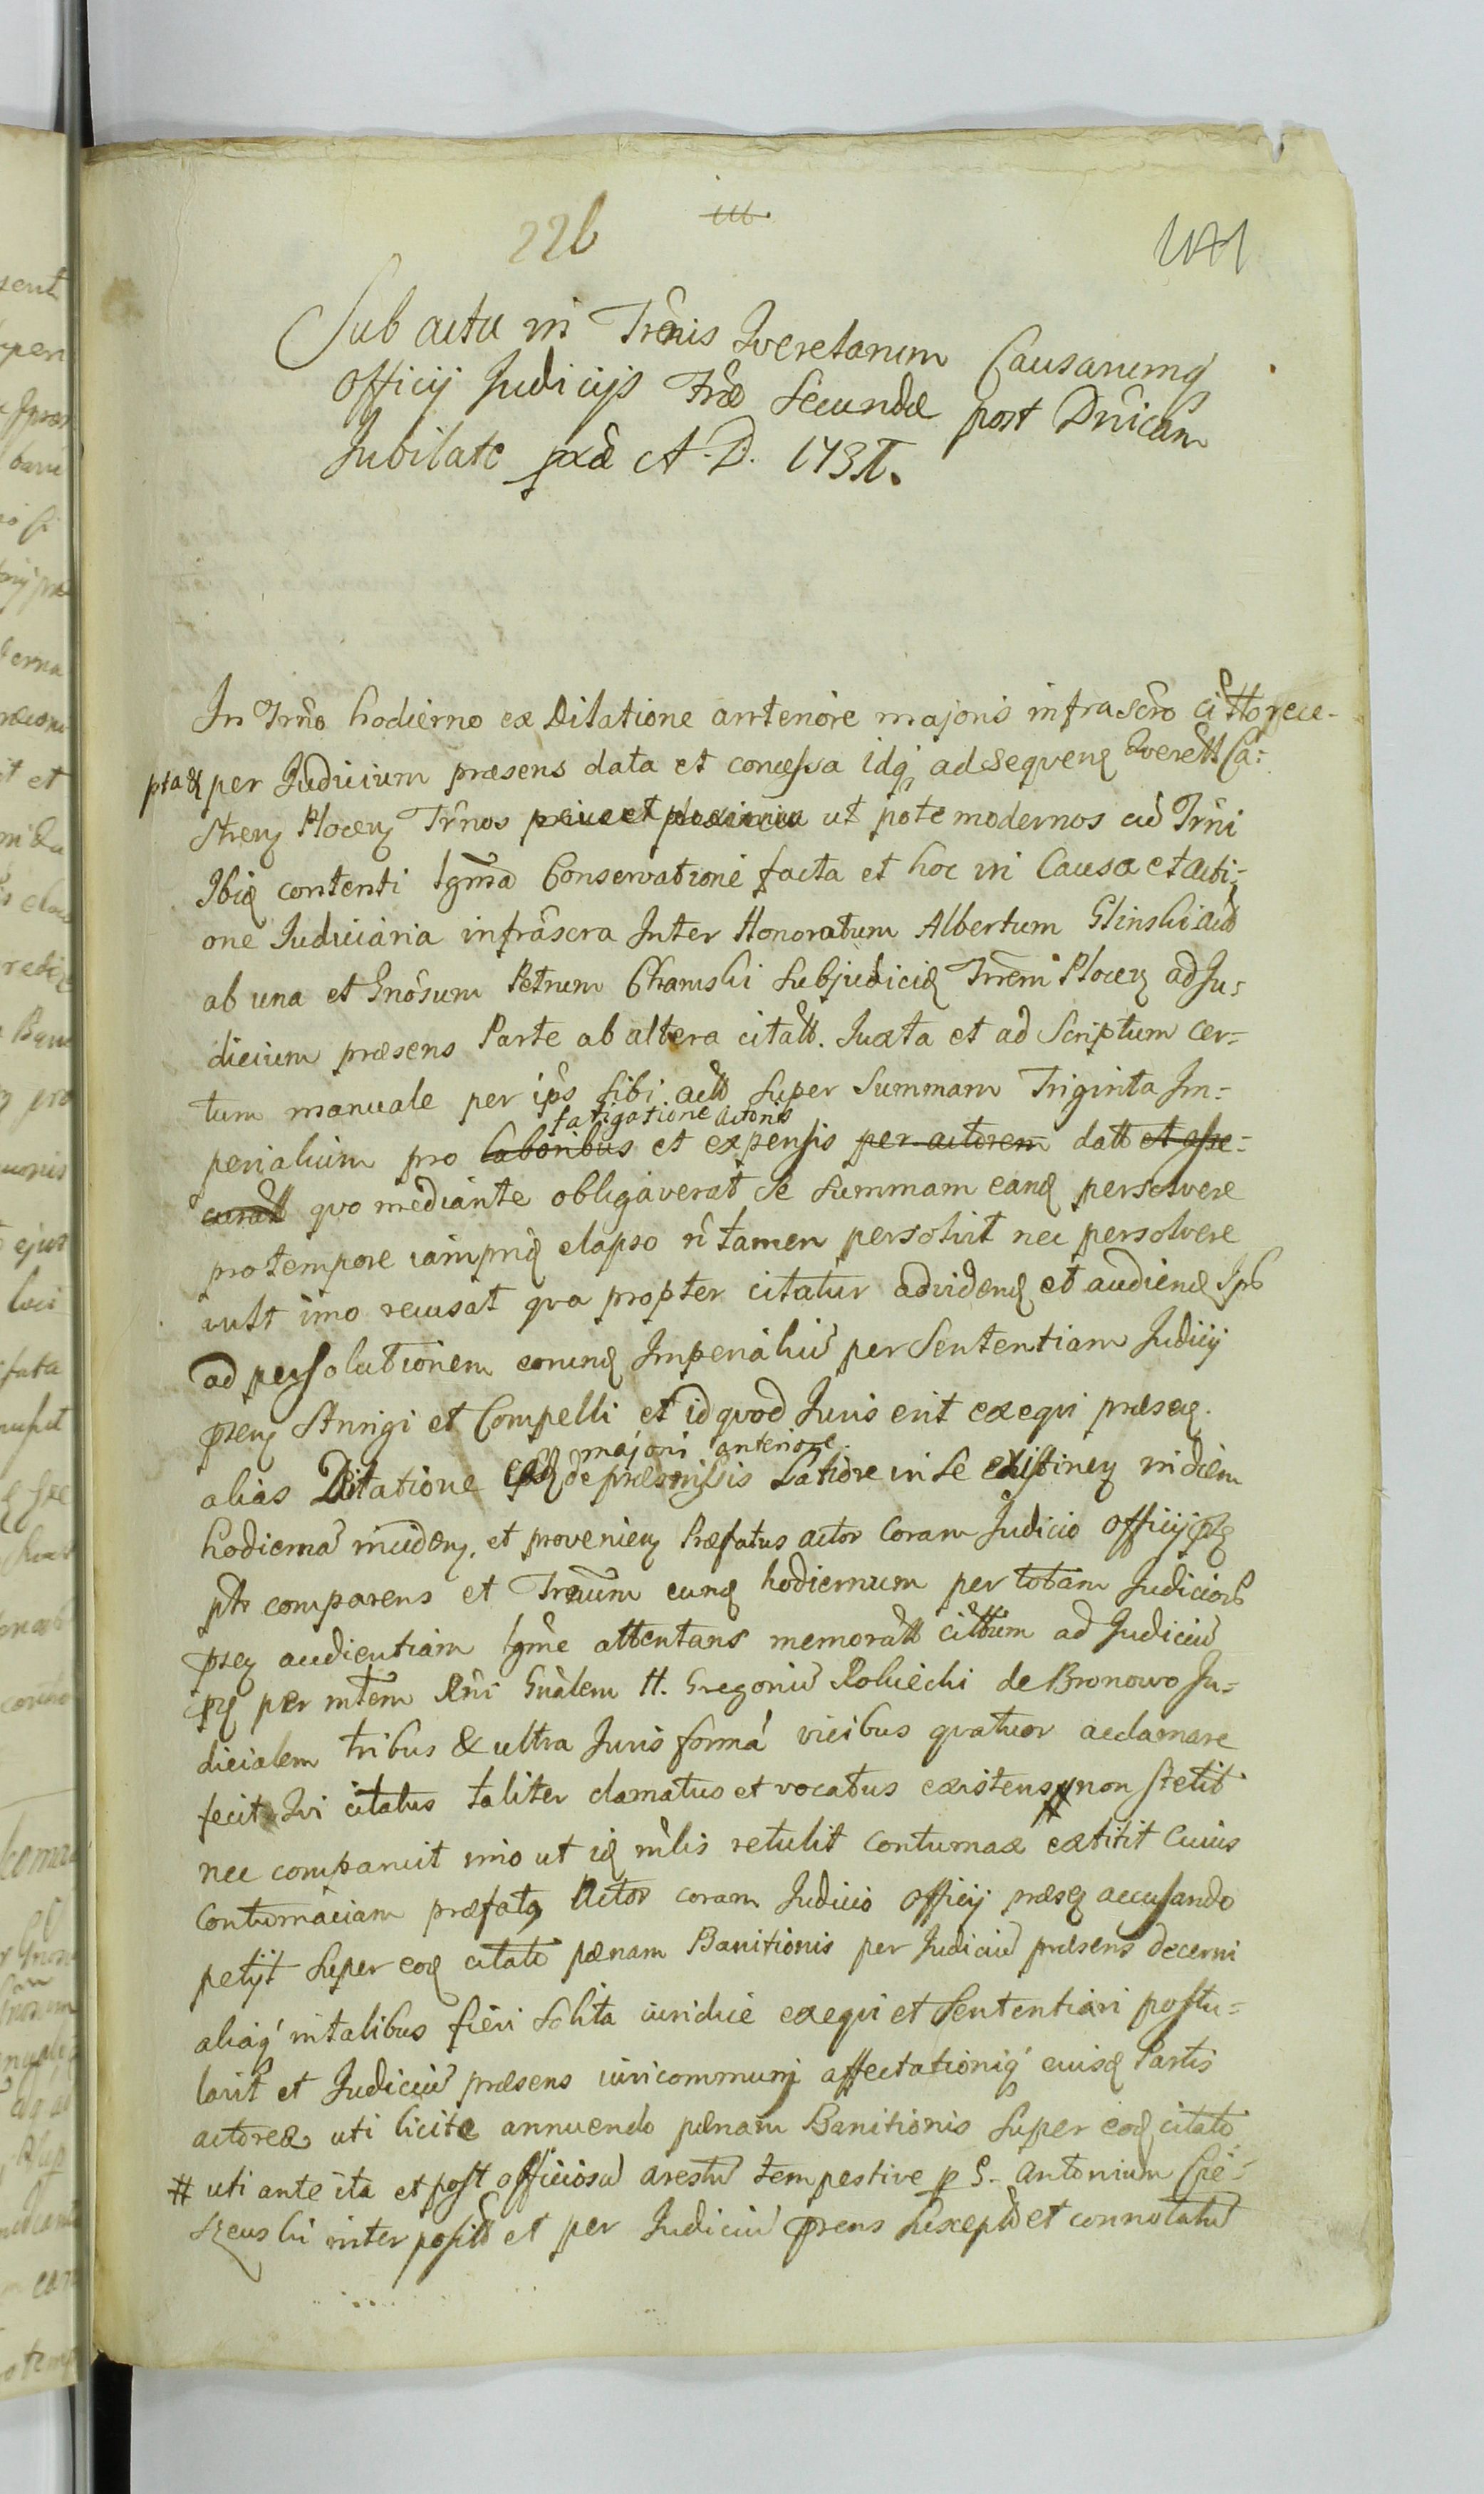 226
Sub actu in Trnis Querelarum Causarumq
Officij Judicijs Fria Secunda post Dnicam
Jubilate pxa A. D. 173
In Trno hodierno ex Dilatione anteriore majoris infrascro citto rece-
pta & per Judicium præsens data et concessa idq ad sequen Querell Ca-
stren Plocen Trnos prius et proxime ut pote modernos cu Trni
Ibid contenti lgma Conservatione facta et hoc in Causa et acti-
one Judiciaria infrascra Inter Honoratum Albertum Glinski act
ab una et Gnosum Petrum Chamski Subjudicid Trrem Plocen ad Ju-
dicium præsens Parte ab altera citatt. Juxta et ad Scriptum cer-
tum manuale per ips sibi act super Summam Triginta Im-
fatigatione actoris
perialium pro laboribus et expensis per actorem datt et asse-
curatt quo mediante obligaverat se summam eand persolvere
pro tempore iamprid elapso n tamen persolvit nec persolvere
vult imo recusat qva propter citatur ad vidend et audiend
ad persolutionem eorund Imperialiu per Sententiam Judicij
psen Stringi et Compelli et id quod Juris erit exequi præsen.
majori anteriore
alias Dilatione de præmissis Latiore in se existinen in diem
hodierna inciden. et provenien Præfatus actor Coram Judicio officij
ptr comparens et Trnum eund hodiernum per totam Judicior
psen audientiam lgme attentans memoratt cittum ad Judiciu
ps per mtem Rni Gnalem H. Gregoriu Roluecki de Bronowo Ju-
dicialem tribus & ultra Juris formá vicibus quatuor acclamare
fecit Qvi citatus taliter clamatus et vocatus existens # non stetit
nec comparuit imo ut id mlis retulit Contumax extitit Cuius
Contumaciam præfatq Actor coram Judicio Officij præsen accusando
petijt super eod citato pænam Banitionis per Judiciu præsens decerni
aliaq in talibus fieri solita iuridice exequi et Sententiari postu-
lavit et Judiciu præsens iuri communi affectationiq eiusd Partis
actorea uti licita annuendo pænam Banitionis super eod citato
# uti ante ita et post officiosu arestu tempestive p G. Antonium Cie-
szeuski inter positt et per Judiciu prens susceptu et connotatu